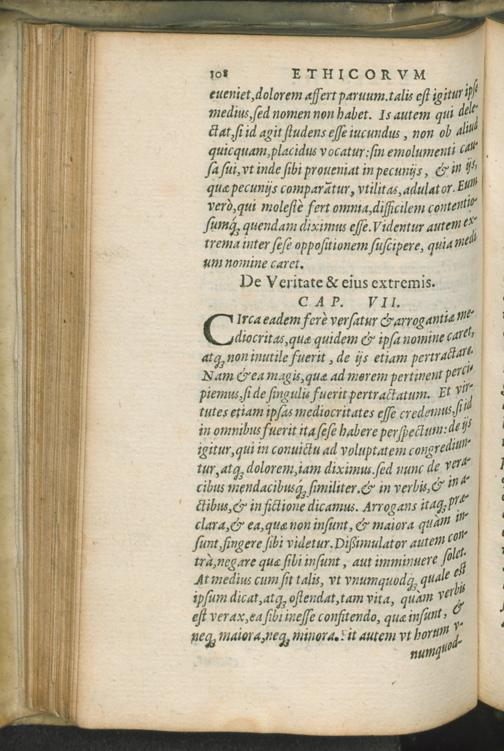 108 ETHICORVM
eueniet,dolorem affert paruum.talis est igitur ipse
medius,sed nomen non habet. Is autem qui dele-
ctat,si id agit studens esse iucundus, non ob aliud
quicquam,placidus vocatur:sin emolumenti cau-
sa sui,vt inde sibi proueniat in pecunijs, & in ijs,
quæ pecunijs comparãtur, vtilitas,adulator. Eum
verò,qui molestè fert omnia,difficilem contentio-
sumq́; quendam diximus esse. Videntur autem ex-
trema inter sese oppositionem suscipere, quia medi-
um nomine caret.
De Veritate & eius extremis.
CAP. VII.
CIrca eadem ferè versatur & arrogantiæ me-
diocritas,quæ quidem & ipsa nomine caret,
atq; non inutile fuerit, de ijs etiam pertractare.
Nam & ea magis,quæ ad morem pertinent perci-
piemus,si de singulis fuerit pertractatum. Et vir-
tutes etiam ipsas mediocritates esse credemus,si id
in omnibus fuerit ita sese habere perspectum: de ijs
igitur,qui in conuictu ad voluptatem congrediun-
tur,atq; dolorem,iam diximus.sed nunc de vera-
cibus mendacibusq́; similiter.& in verbis,& in a-
ctibus,& in fictione dicamus. Arrogans itaq; præ-
clara,& ea,quæ non insunt, & maiora quàm in-
sunt,fingere sibi videtur.Dißimulator autem con-
trà,negare quæ sibi insunt, aut imminuere solet.
At medius cum sit talis, vt vnumquodq; quale est
ipsum dicat,atq; ostendat,tam vita, quàm verbis
est verax,ea sibi inesse confitendo, quæ insunt, &
neq; maiora,neq; minora. Fit autem vt horum v-
numquod-